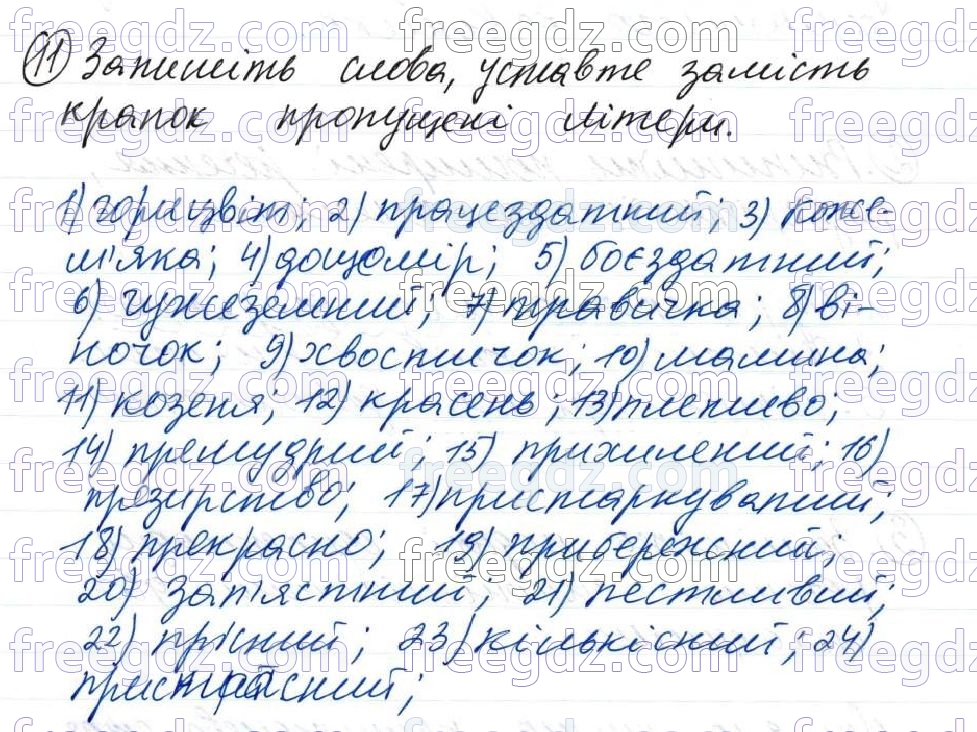 11 Запишіть слова, уставте замість
крапок пропущені літери.
1) горицвіт; 2) працездатний; 3) коже-
м'яка; 4) дощомір; 5) боєздатний;
6) чужеземний; 7) травичка; 8) ві-
ночок; 9) хвостичок; 10) мамина;
11) козеня; 12) красень; 13) плетиво;
14) премудрий; 15) прихилений; 16)
презирство; 17) пристаркуватий;
18) прекрасно; 19) прибережний;
20) зап'ястний; 21) пестливий;
22) прісний; 23) кількісний; 24)
freegdz.com freegdz.com freegdz